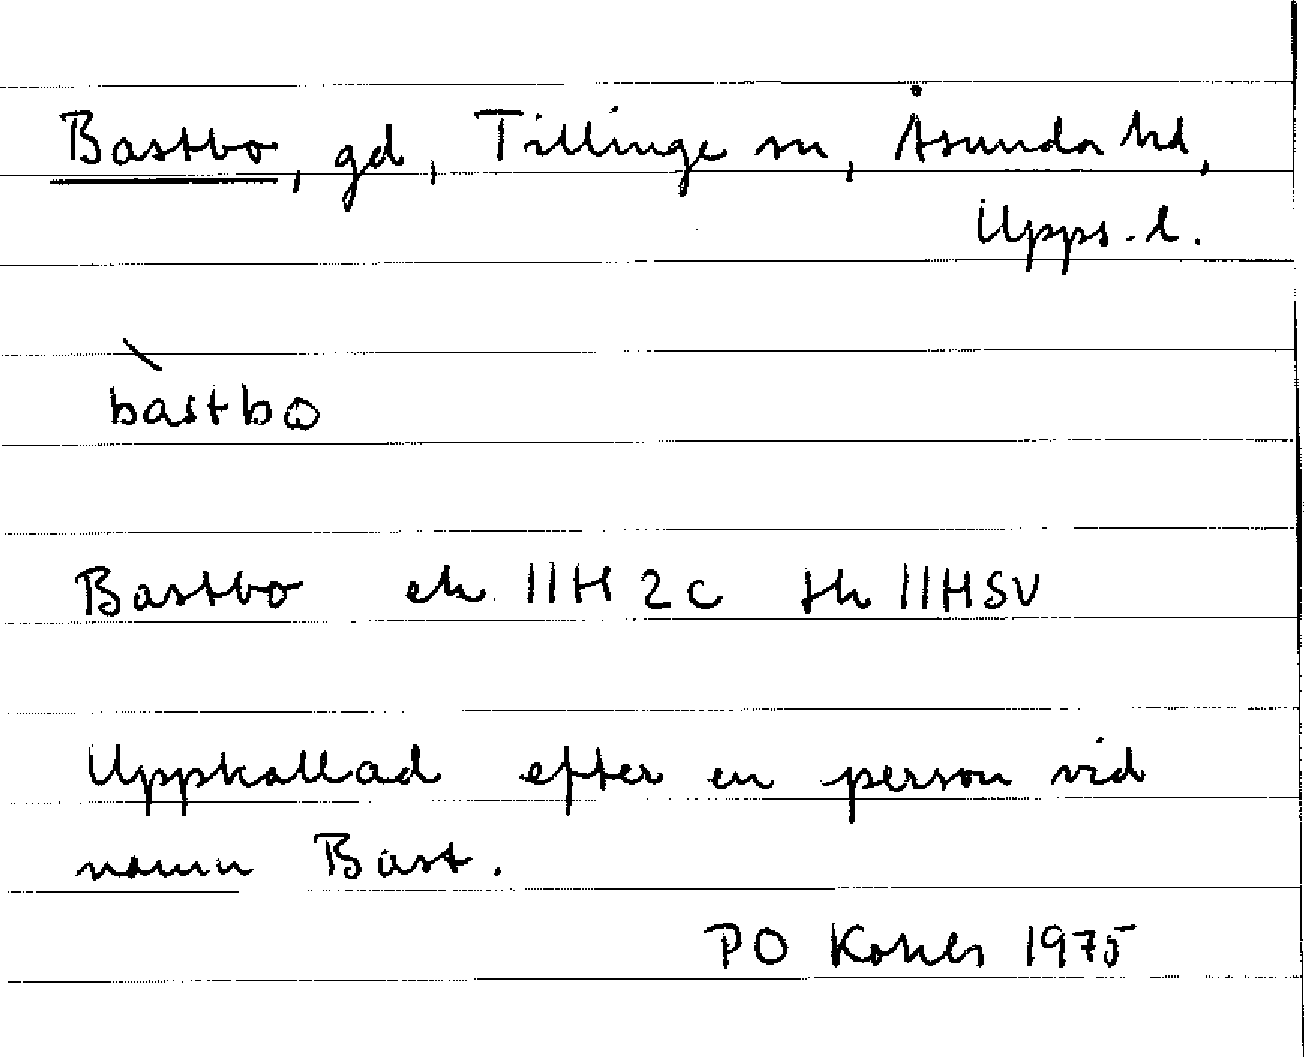 Bastbo, gd, Tillinge sn, Åsunda hd,
Upps. l.
bàstbo
Bastbo ek 11H 2c tk 11HSV
Uppkallad efter en person vid
namn Bast.
PO 1975